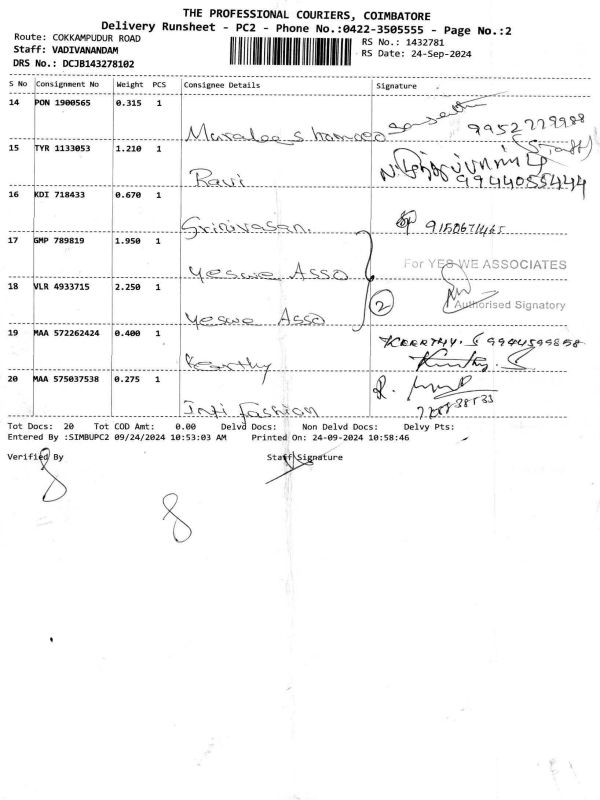 THE PROFESSIONAL COURIERS, COIMBATORE
Delivery Runsheet - PC2 - Phone No.:0422-3505555 - Page No.:2
Route: COKKAMPUDUR ROAD
Staff: VADIVANANDAM
DRS No.: DCJB143278102
RS No.: 1432781
RS Date: 24-Sep-2024
S No Consignment No Weight PCS Consignee Details Signature
14 PON 1900565 0.315 1
9952779988
15 TYR 1133053 1.210 1
(Staff)
Ravi 9944055444
16 KDI 718433 0.670 1
Srinivasan.
17 GMP 789819 1.950 1
Yeswe Asso For YES WE ASSOCIATES
18 VLR 4933715 2.250 1 2
Authorised Signatory
Yeswe Asso
19 MAA 572262424 0.400 1 KEERTHY. S
Kearthy
20 MAA 575037538 0.275 1
Inti fashion
Tot Docs: 20 Tot COD Amt: 0.00 Delvd Docs: Non Delvd Docs: Delvy Pts:
Entered By :SIMBUPC2 09/24/2024 10:53:03 AM Printed On: 24-09-2024 10:58:46
Verified By Staff Signature